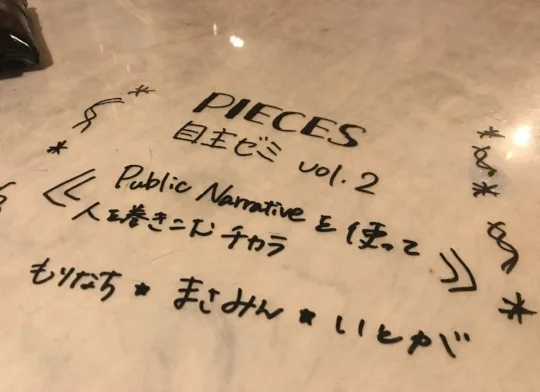 PIECES
自主ゼミ vol.2
Public Narrativeを使って
人を巻きこむチカラ
もりなち★まさみん★いとやが